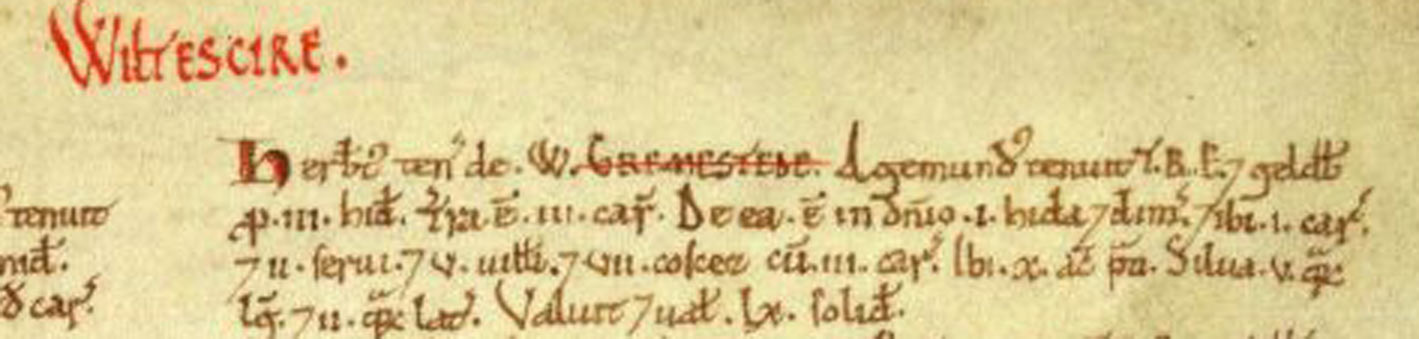 WILTESCIRE.
Herbt' ten' de. W. GREMESTEDE. Agemund' tenuit T.R.E. 7 geldb
tenuit p. iii. hid. Tra. ē. iii. car'. De ea. ē in dnio. i. hida 7 dim'. 7 ibi. i. car'.
7 ii. serui. 7 v. uilli. 7 vii. coscez cū. iii. car'. Ibi. x. ac p̄ti. Silua. v. q̄z
car'. lḡ. 7 ii. q̄z lat'. Valuit 7 ual. lx. solid.